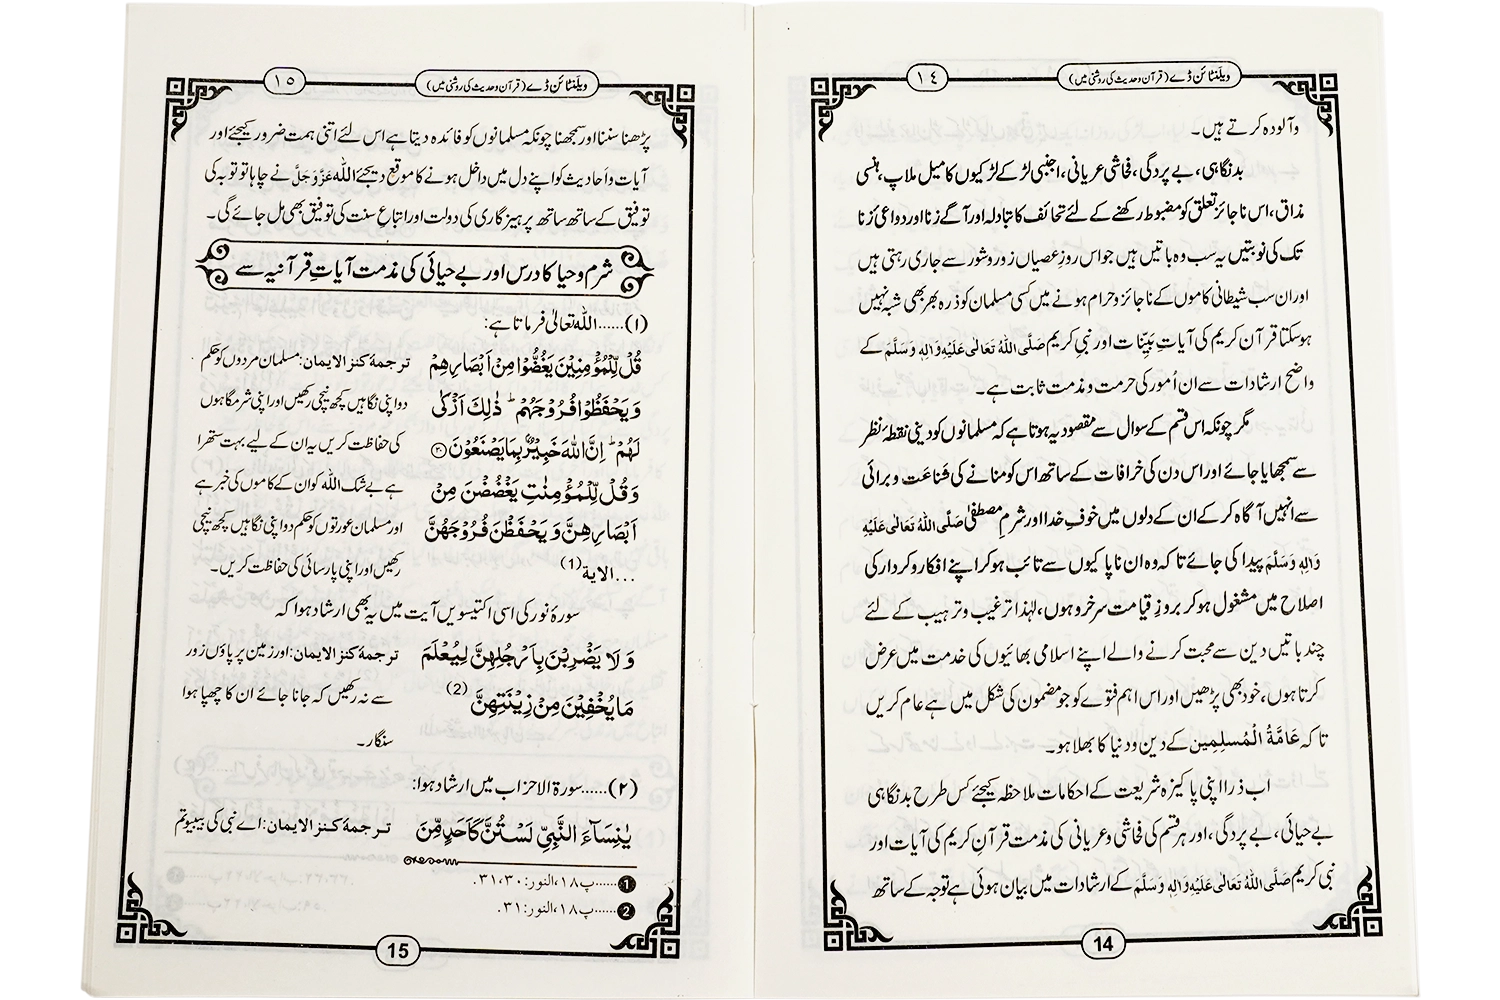 ویلنٹائن ڈے (قرآن وحدیث کی روشنی میں)
١٤
وآلودہ کرتے ہیں۔
بدنگاہی، بے پردگی، فحاشی عریانی، اجنبی لڑکے لڑکیوں کا میل ملاپ، ہنسی
مذاق، اس ناجائز تعلق کو مضبوط رکھنے کے لئے تحائف کا تبادلہ اور آگے زنا اور دواعیٔ زنا
تک کی نوبتیں یہ سب وہ باتیں ہیں جو اس روزِ عصیاں زور و شور سے جاری رہتی ہیں
اور ان سب شیطانی کاموں کے ناجائز و حرام ہونے میں کسی مسلمان کو ذرہ بھر بھی شبہ نہیں
ہوسکتا قرآنِ کریم کی آیاتِ بَیِّنات اور نبی کریم صَلَّی اللہُ تَعَالٰی عَلَیْہِ وَاٰلِہٖ وَسَلَّمَ کے
واضح ارشادات سے ان اُمور کی حرمت و مذمت ثابت ہے۔
مگر چونکہ اس قسم کے سوال سے مقصود یہ ہوتا ہے کہ مسلمانوں کو دینی نقطۂ نظر
سے سمجھایا جائے اور اس دن کی خرافات کے ساتھ اس کو منانے کی شَناعت و برائی
سے انہیں آگاہ کرکے ان کے دلوں میں خوفِ خدا اور شرمِ مصطفیٰ صَلَّی اللہُ تَعَالٰی عَلَیْہِ
وَاٰلِہٖ وَسَلَّمَ پیدا کی جائے تاکہ وہ ان ناپاکیوں سے تائب ہوکر اپنے افکار و کردار کی
اصلاح میں مشغول ہوکر بروزِ قیامت سرخرو ہوں، لہٰذا ترغیب و ترہیب کے لئے
چند باتیں دین سے محبت کرنے والے اپنے اسلامی بھائیوں کی خدمت میں عرض
کرتا ہوں، خود بھی پڑھیں اور اس اہم فتوے کو جو مضمون کی شکل میں ہے عام کریں
تاکہ عَامَّۃُ الْمُسلِمِین کے دین و دنیا کا بھلا ہو۔
اب ذرا اپنی پاکیزہ شریعت کے احکامات ملاحظہ کیجئے کس طرح بدنگاہی
بے حیائی، بے پردگی، اور ہر قسم کی فحاشی و عریانی کی مذمت قرآنِ کریم کی آیات اور
نبی کریم صَلَّی اللہُ تَعَالٰی عَلَیْہِ وَاٰلِہٖ وَسَلَّمَ کے ارشادات میں بیان ہوئی ہے توجہ کے ساتھ
14
ویلنٹائن ڈے (قرآن وحدیث کی روشنی میں)
١٥
پڑھنا سننا اور سمجھنا چونکہ مسلمانوں کو فائدہ دیتا ہے اس لئے اتنی ہمت ضرور کیجئے اور
آیات و اَحادیث کو اپنے دل میں داخل ہونے کا موقع دیجئے اللہ عَزَّوَجَلَّ نے چاہا تو توبہ کی
توفیق کے ساتھ ساتھ پرہیزگاری کی دولت اور اتباعِ سنت کی توفیق بھی مل جائے گی۔
شرم و حیا کا درس اور بے حیائی کی مذمت آیاتِ قرآنیہ سے
(١)......اللہ تعالیٰ فرماتا ہے:
قُلْ لِّلْمُؤْمِنِیْنَ یَغُضُّوْا مِنْ اَبْصَارِهِمْ ترجمۂ کنز الایمان: مسلمان مردوں کو حکم
وَیَحْفَظُوْا فُرُوْجَهُمْ ؕ ذٰلِكَ اَزْكٰى دو اپنی نگاہیں کچھ نیچی رکھیں اور اپنی شرمگاہوں
لَهُمْ ؕ اِنَّ اللّٰهَ خَبِیْرٌۢ بِمَا یَصْنَعُوْنَ ۝۳۰ کی حفاظت کریں یہ ان کے لیے بہت ستھرا
وَقُلْ لِّلْمُؤْمِنٰتِ یَغْضُضْنَ مِنْ ہے بے شک اللہ کو ان کے کاموں کی خبر ہے
اَبْصَارِهِنَّ وَیَحْفَظْنَ فُرُوْجَهُنَّ اور مسلمان عورتوں کو حکم دو اپنی نگاہیں کچھ نیچی
...الایة (1) رکھیں اور اپنی پارسائی کی حفاظت کریں۔
سورۂ نور کی اسی اکتیسویں آیت میں یہ بھی ارشاد ہوا کہ
وَلَا یَضْرِبْنَ بِاَرْجُلِهِنَّ لِیُعْلَمَ ترجمۂ کنز الایمان: اور زمین پر پاؤں زور
مَا یُخْفِیْنَ مِنْ زِیْنَتِهِنَّ (2) سے نہ رکھیں کہ جانا جائے ان کا چھپا ہوا
سنگار۔
(٢)......سورۃ الاحزاب میں ارشاد ہوا:
یٰنِسَآءَ النَّبِیِّ لَسْتُنَّ كَاَحَدٍ مِّنَ ترجمۂ کنز الایمان: اے نبی کی بیبیو تم
1......پ١٨، النور: ٣٠، ٣١.
2......پ١٨، النور: ٣١.
15